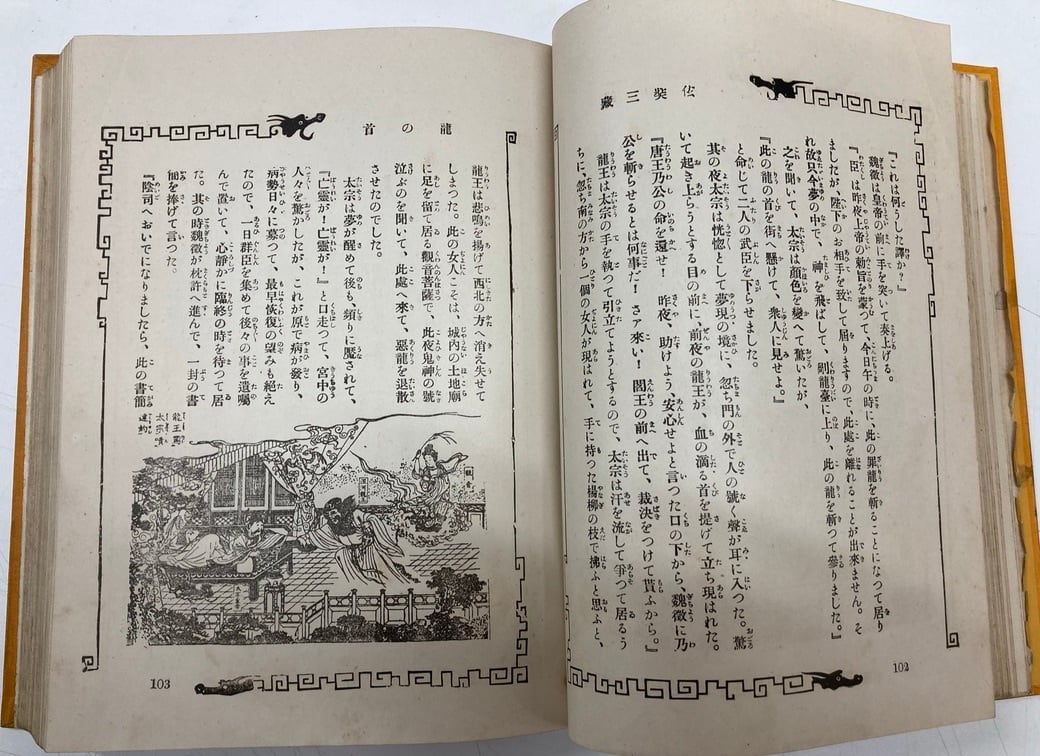 伭奘三藏
『これは何うした譯か？』
魏徵は皇帝の前に手を突いて奏上げる。
『臣は昨夜上帝の勅旨を蒙つて、今日午の時に、此の罪龍を斬ることになつて居り
ましたが、陛下のお相手を致して居りますので、此處を離れることが出來ません。そ
れ故只今夢の中で、神を飛ばして、剮龍臺に上り、此の龍を斬つて參りました。』
之を聞いて、太宗は顏色を變へて驚いたが、
『此の龍の首を街へ懸けて、衆人に見せよ。』
と命じて二人の武臣を下らせました。
其の夜太宗は恍惚として夢現の境に、忽ち門の外で人の號く聲が耳に入つた。驚
いて起き上らうとする目の前に、前夜の龍王が、血の滴る首を提げて立ち現はれた。
『唐王乃公の命を還せ！　昨夜、助けよう、安心せよと言つた口の下から魏徵に乃
公を斬らせるとは何事だ！　さァ來い！　閻王の前へ出て、裁決をつけて貰ふから。』
龍王は太宗の手を執つて引立てようとするので、太宗は汗を流して爭つて居るう
ちに、忽ち南の方から一個の女人が現はれて、手に持つた楊柳の枝で拂ふと思ふと、
102
龍の首
龍王は悲鳴を揚げて西北の方へ消え失せて
しまつた。此の女人こそは、城内の土地廟
に足を留て居る觀音菩薩で、此夜鬼神の號
泣ぶのを聞いて、此處へ來て、惡龍を退散
させたのでした。
太宗は夢が醒めて後も、頻りに魘されて、
『亡靈が！亡靈が！』と口走つて、宮中の
人々を驚かしたが、これが原で病が發り、
病勢日々に募つて、最早恢復の望みも絶え
たので、一日群臣を集めて後々の事を遺囑
んで置いて、心靜かに臨終の時を待つて居
た。其の時魏徵が枕許へ進んで、一封の書
面を捧げて言つた。
『陰司へおいでになりましたら、此の書簡
觀音
龍王罵
太宗責
違約
103